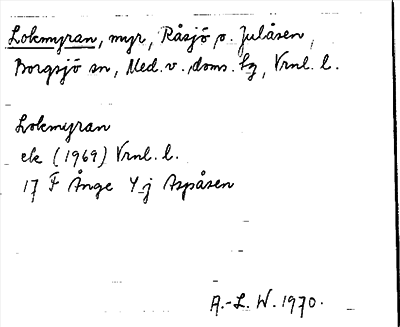 Lokmyran, myr, Råsjö o. Julåsen,
Borgsjö sn, Med. v., doms. lg, Vrnl. l.
Lokmyran
ek (1969) Vrnl. l.
17 F Ånge Y j Aspåsen
A.-L. W. 1970.